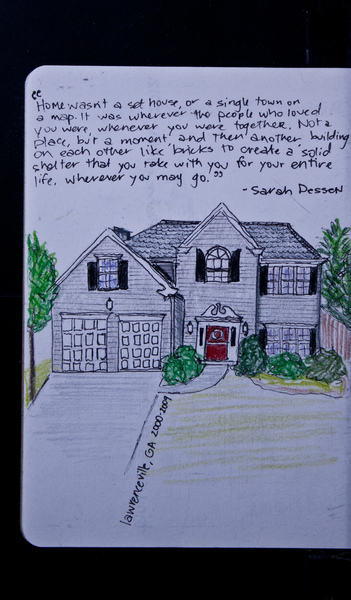 "Home wasn't a set house, or a single town on
a map. It was wherever the people who loved
you were, whenever you were together. Not a
place, but a moment, and then another building
on each other like bricks to create a solid
shelter that you take with you for your entire
life, wherever you may go."
- Sarah Dessen
lawrenceville, GA 2000-2009